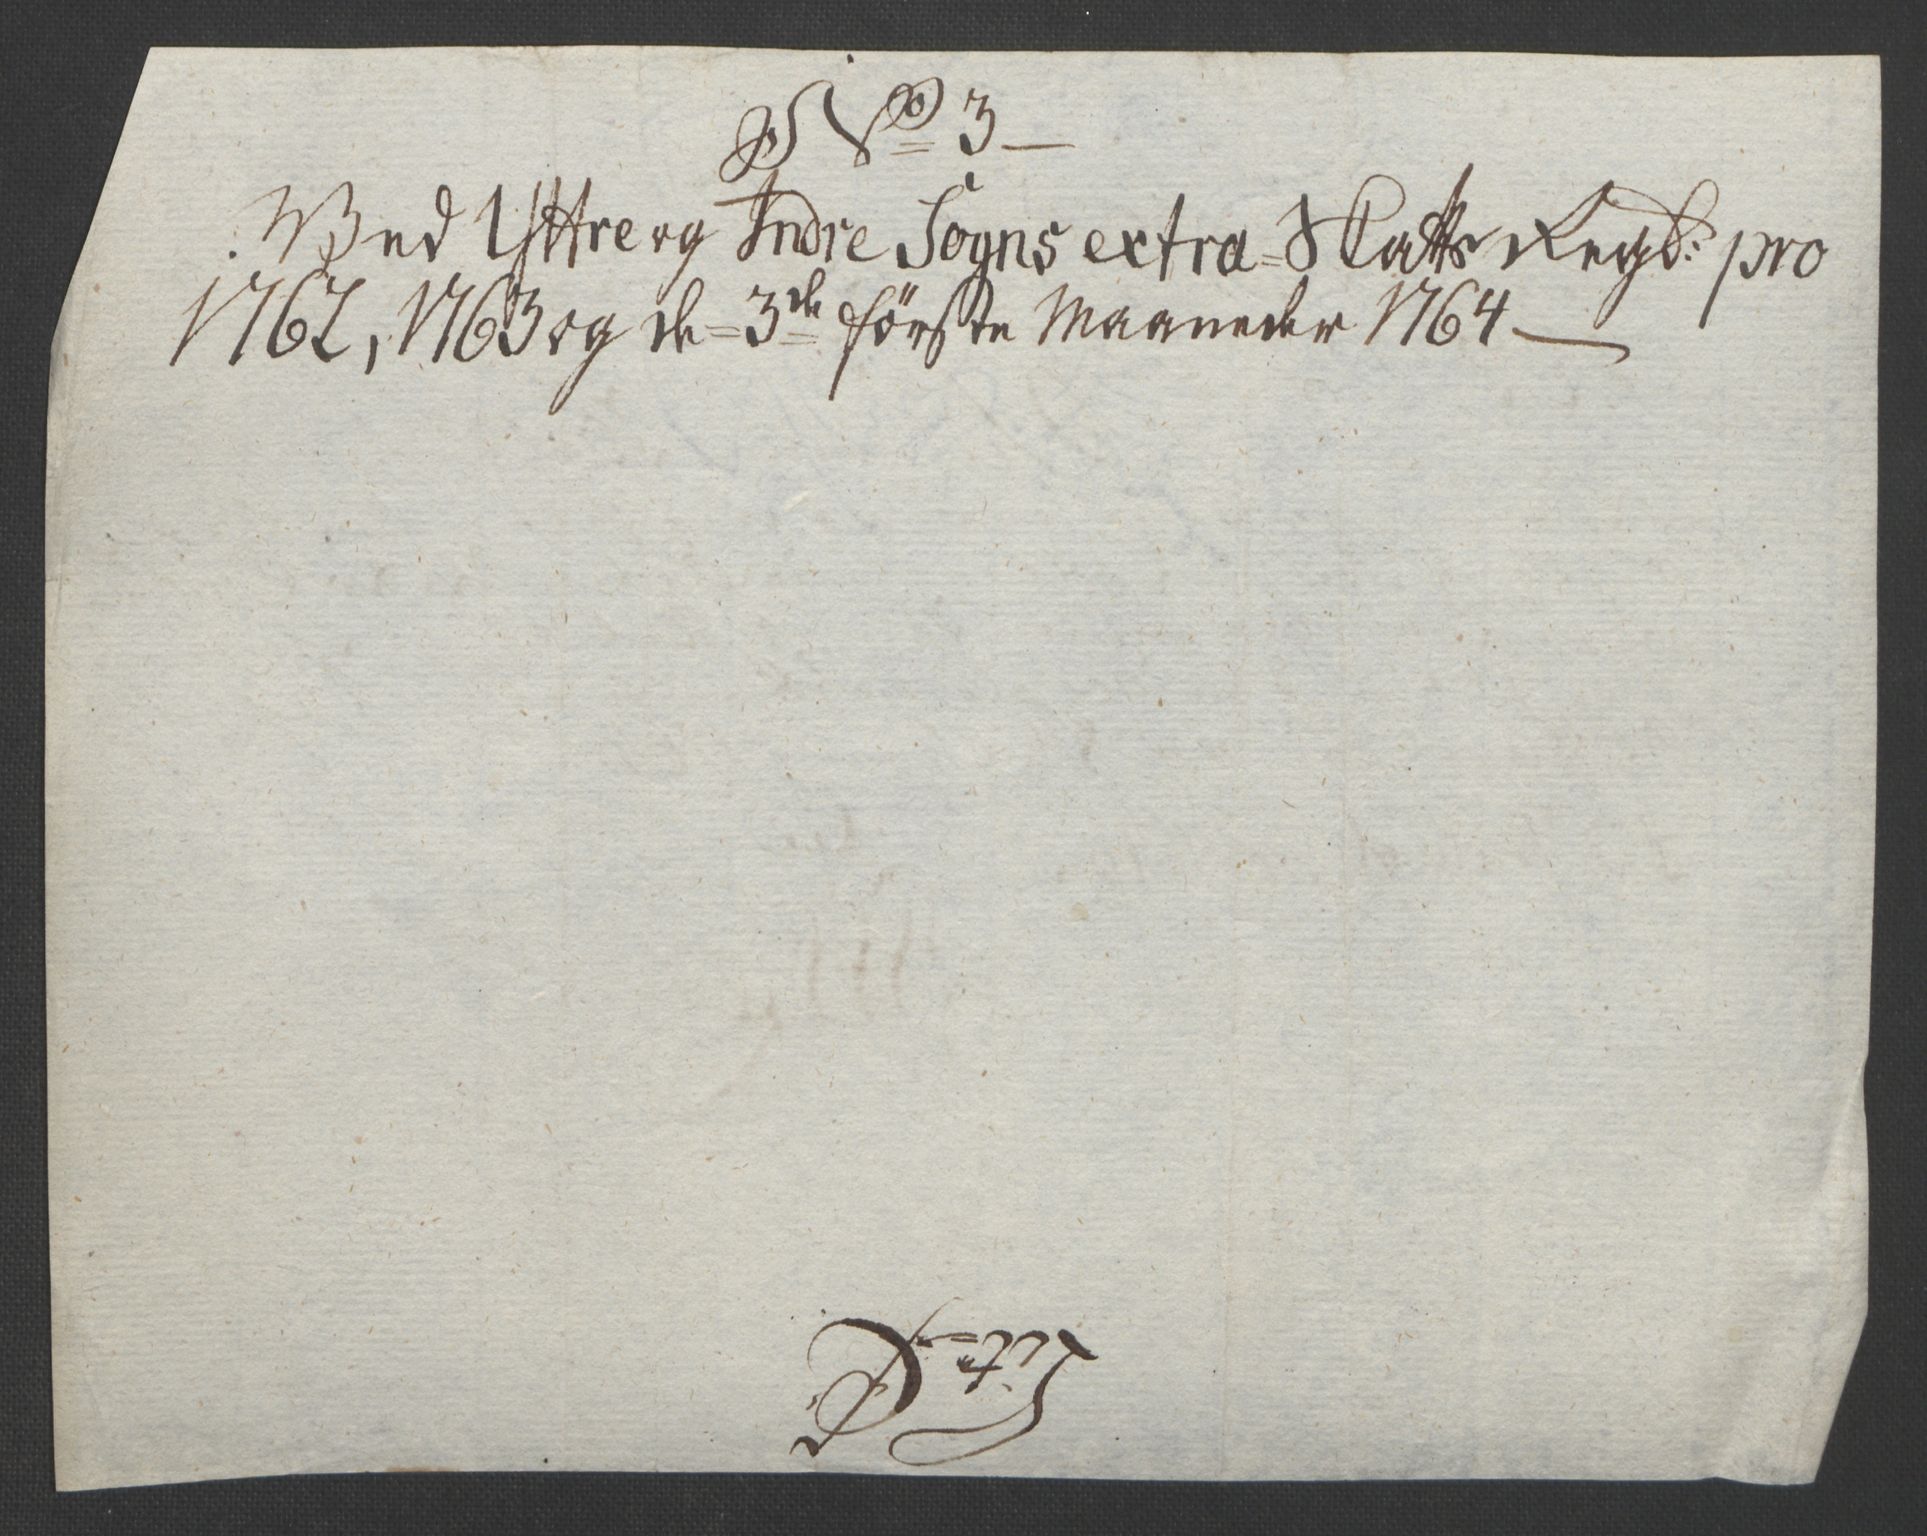 No 3
Wed Yttre og Indre Sogns extra=Skatts Regsk: pro
1762, 1763 og de=3de förste Maaneder 1764
Litr: